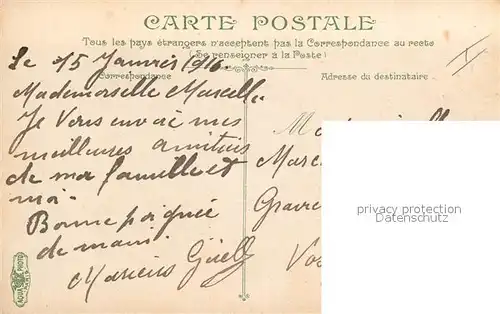 CARTE POSTALE
Tous les pays étrangers n'acceptent pas la Correspondance au recto
(Se renseigner à la Poste)
Correspondance
Adresse du destinataire
Le 15 Janvier 1910.
Mademoiselle Marcelle
Je Vous envoie mes
meilleures amitiés
de ma famille et
moi.
Bonne poignée
de main.
Marcel
Grav
privacy protection
Datenschutz
AQUA PHOTO